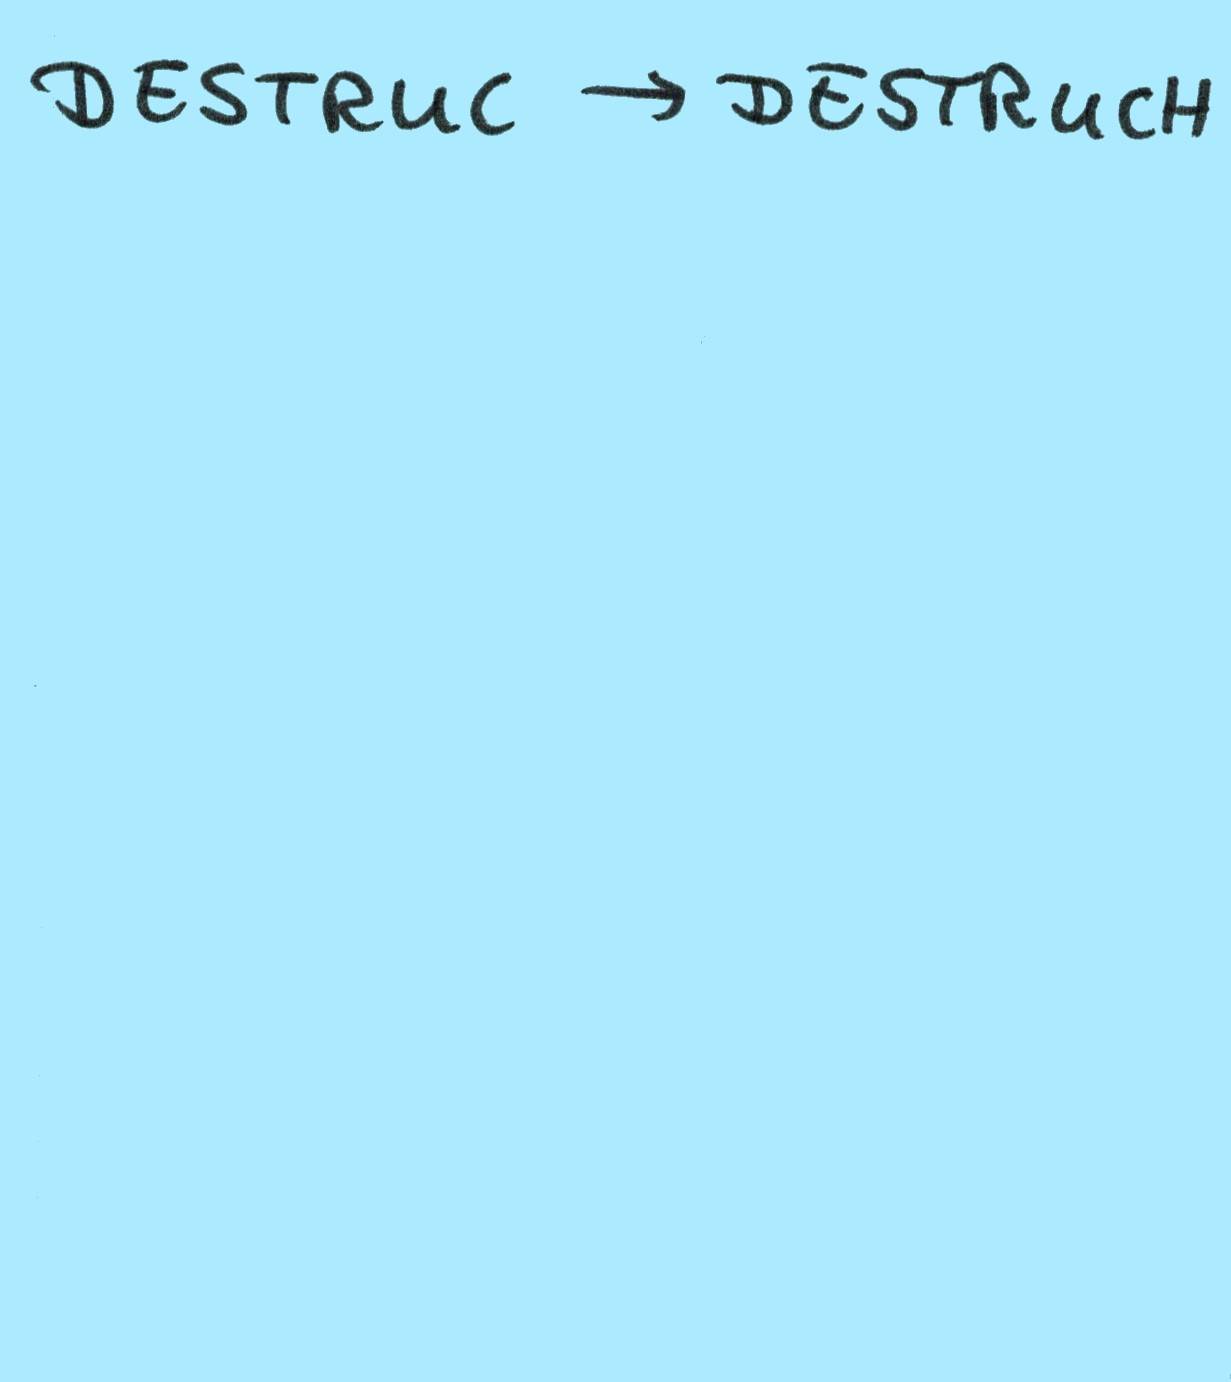 DESTRUC → DESTRUCH